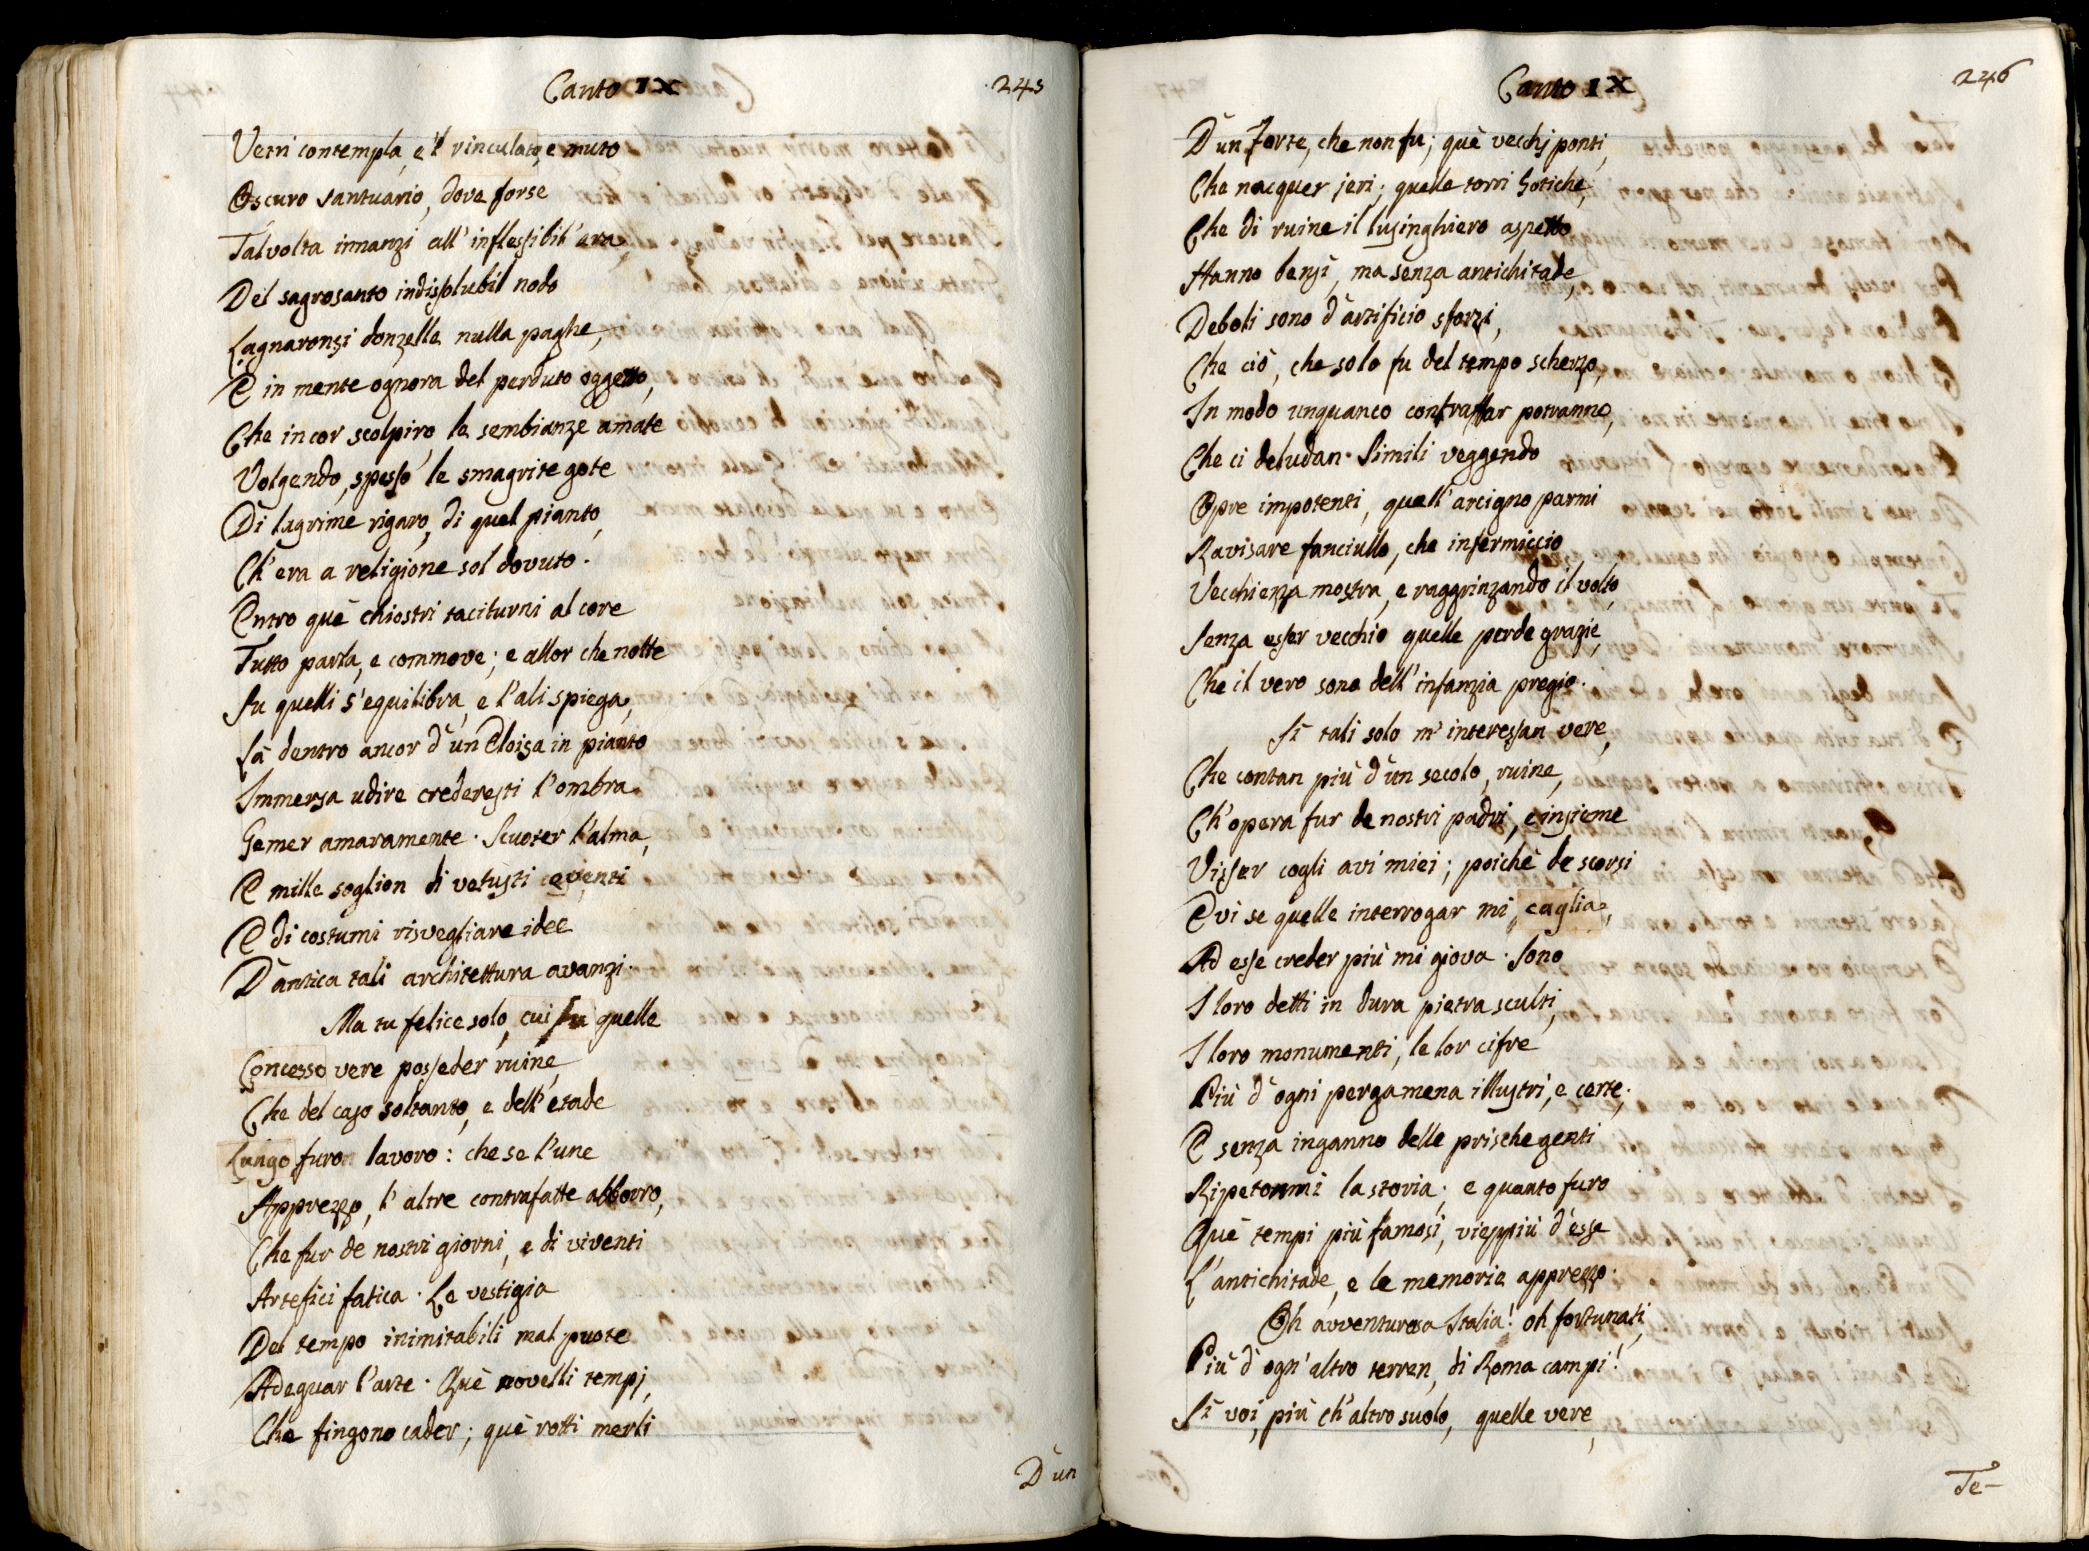 Canto IX
245
Vetri contempla, e 'l vinculato, e muto
Oscuro santuario, dove forse
Talvolta innanzi all' inflessibil' ara
Del sagrosanto indissolubil nodo
Lagnaronsi donzelle nulla paghe,
E in mente ognora del perduto oggetto,
Che in cor scolpiro le sembianze amate
Volgendo, spesso le smagrite gote
Di lagrime rigaro, di quel pianto,
Ch' era a religione sol dovuto.
Entro què chiostri taciturni al core
Tutto parla, e commove; e allor che notte
Su quelli s' equilibra, e l' ali spiega,
Là dentro ancor d' un Eloisa in pianto
Immersa udire crederesti l' ombra
Gemer amaramente. Scuoter l' alma,
E mille soglion di vetusti eventi
E di costumi risvegliare idee
D' antica tali architettura avanzi.
Ma tu felice solo, cui fu quelle
Concesso vere posseder ruine,
Che del caso soltanto, e dell' etade
Lungo furon lavoro: che se l' une
Apprezzo, l' altre contrafatte abborro,
Che fur de nostri giorni, e di viventi
Artefici fatica. Le vestigia
Del tempo inimitabili mal puote
Adeguar l' arte. Què novelli tempj,
Che fingono cader; què rotti merli
D' un
Canto IX
246
D' un Forte, che non fu; què vecchj ponti,
Che nacquer jeri; quelle torri Gotiche,
Che di ruine il lusinghiero aspetto
Hanno bensì, ma senza antichitade,
Deboli sono d' artificio sforzi,
Che ciò, che solo fu del tempo scherzo,
In modo unquanco contraffar potranno,
Che ci deludan. Simili veggendo
Opre impotenti, quell' arcigno parmi
Ravisare fanciullo, che infermiccio
Vecchiezza mostra, e raggrinzando il volto,
Senza esser vecchio quelle perde grazie,
Che il vero sono dell' infanzia pregio.
Sì tali solo m' interessan vere,
Che contan più d' un secolo, ruine,
Ch' opera fur de nostri padri, e insieme
Visser cogli avi miei; poichè de scorsi
Evi se quelle interrogar mi caglia,
Ad esse creder più mi giova. Sono
I loro detti in dura pietra sculti,
I loro monumenti, le lor cifre
Più d' ogni pergamena illustri, e certe;
E senza inganno delle prische genti
Ripetonmi la storia; e quanto furo
Què tempi più famosi, vieppiù d' esse
L' antichitade, e le memorie apprezzo.
Oh avventurosa Italia! oh fortunati,
Più d' ogn' altro terren, di Roma campi!
Sì voi, più ch' altro suolo, quelle vere,
Te-